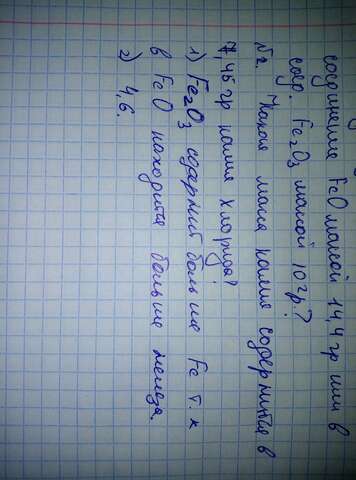 соединения FeO массой 14,4 гр или в
соед. Fe2O3 массой 10 гр?
№2. Какая маса калия содержится в
7,45 гр калия хлорида?
1) Fe2O3 содержит больше Fe т. к
в FeO находится больше железа.
2) 4,6.